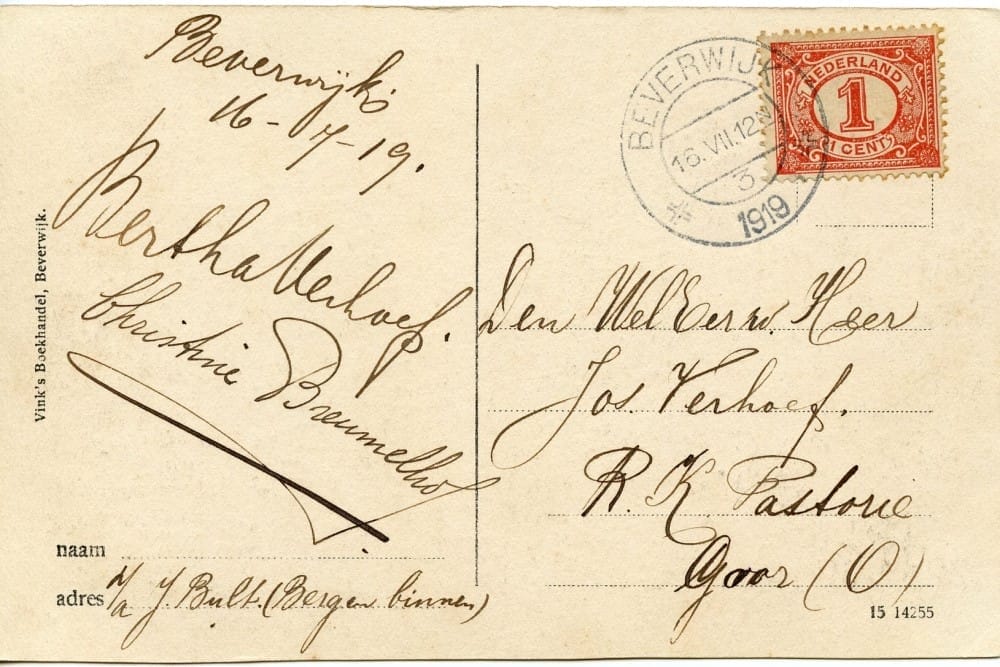 Beverwijk
16-7-19.
Bertha Verhoef.
Christine Breumelhof
naam
adres p/a J. Bult. (Bergen binnen)
Vink's Boekhandel, Beverwijk.
BEVERWIJK
16.VII.12N
3
1919
NEDERLAND
1
1 CENT
Den WelEerw. Heer
Jos. Verhoef.
R. K. Pastorie
Goor (O)
15 14255